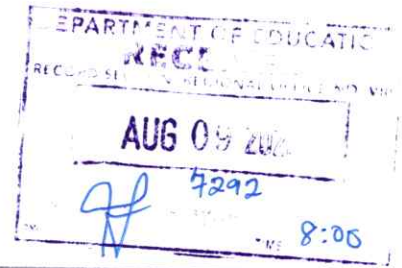 DEPARTMENT OF EDUCATIO
RECE
RECORD SE REGIONAL OFFICE NO. VII
AUG 09 202
7292
8:00